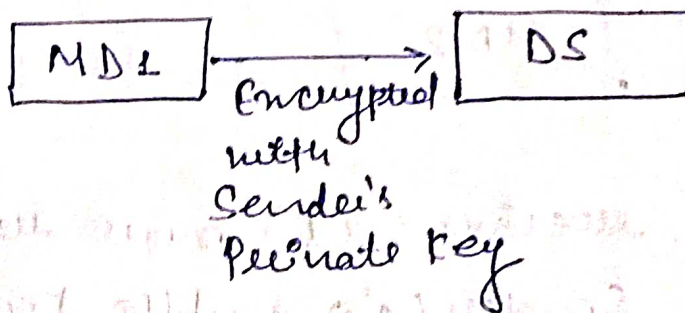 MD1
DS
Encrypted
with
Sender's
Private Key